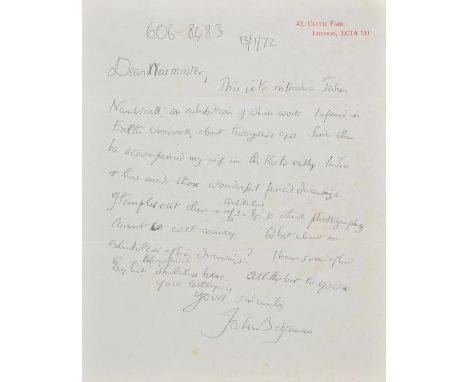 606-8483
43, CLOTH FAIR,
LONDON, EC1A 7JJ
13/1/72
Dear
This is to introduce John
an exhibition of whose work I opened in
Exeter University about two years ago. Since then
he accompanied my wife in the Kulu valley India
& has made those wonderful pencil drawings
of temples out there
which photography
cannot well convey. What about an
exhibition of his drawings?
before
English
here. All the best to you &
your colleagues
Yours sincerely
John Betjeman